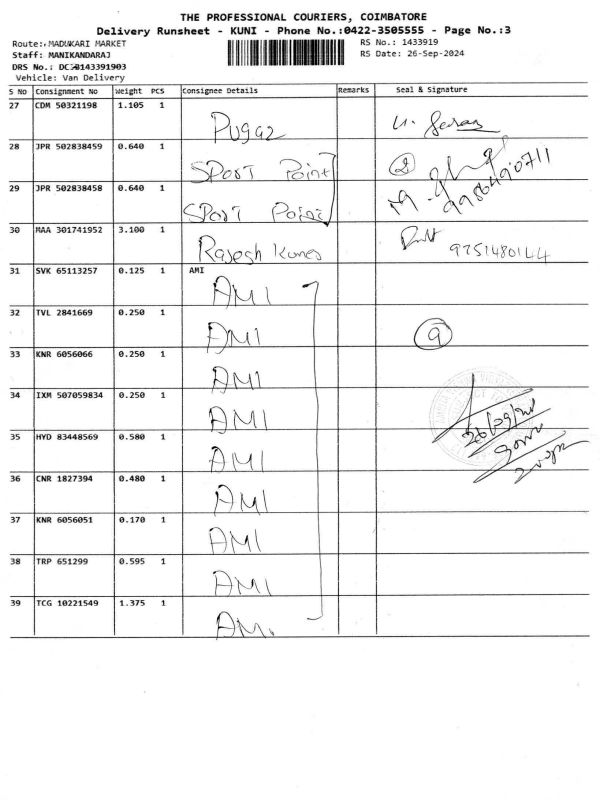 THE PROFESSIONAL COURIERS, COIMBATORE
Delivery Runsheet - KUNI - Phone No.:0422-3505555 - Page No.:3
Route: MADUKARI MARKET
RS No.: 1433919
Staff: MANIKANDARAJ
RS Date: 26-Sep-2024
Vehicle: Van Delivery
S No Consignment No Weight PCS Consignee Details Remarks Seal & Signature
27 CDM 50321198 1.105 1 Pugaz
28 JPR 502838459 0.640 1 SPORT Point 2
29 JPR 502838458 0.640 1 SPORT Point 9986490711
30 MAA 301741952 3.100 1 Rajesh Kumar 9751480144
31 SVK 65113257 0.125 1 AMI
AMI
32 TVL 2841669 0.250 1 AMI 9
33 KNR 6056066 0.250 1 AMI
34 IXM 507059834 0.250 1 AMI
35 HYD 83448569 0.580 1 AMI
36 CNR 1827394 0.480 1 AMI
37 KNR 6056051 0.170 1 AMI
38 TRP 651299 0.595 1 AMI
39 TCG 10221549 1.375 1 AMI